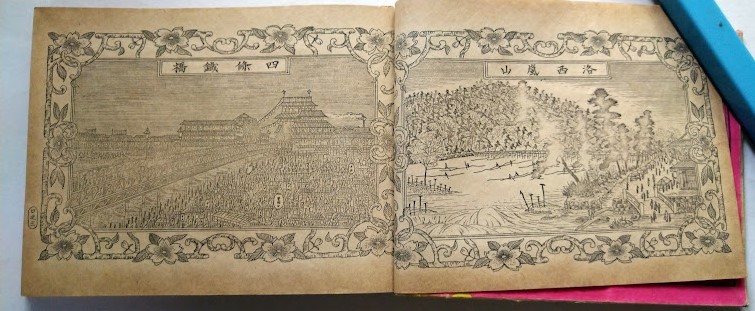 洛西嵐山
四條鐵橋